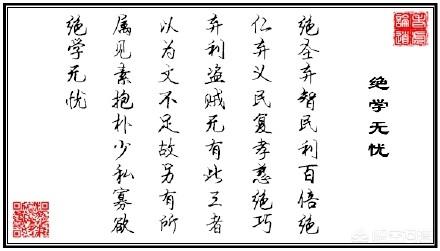 绝学无忧
绝圣弃智民利百倍绝
仁弃义民复孝慈绝巧
弃利盗贼无有此三者
以为文不足故另有所
属见素抱朴少私寡欲
绝学无忧